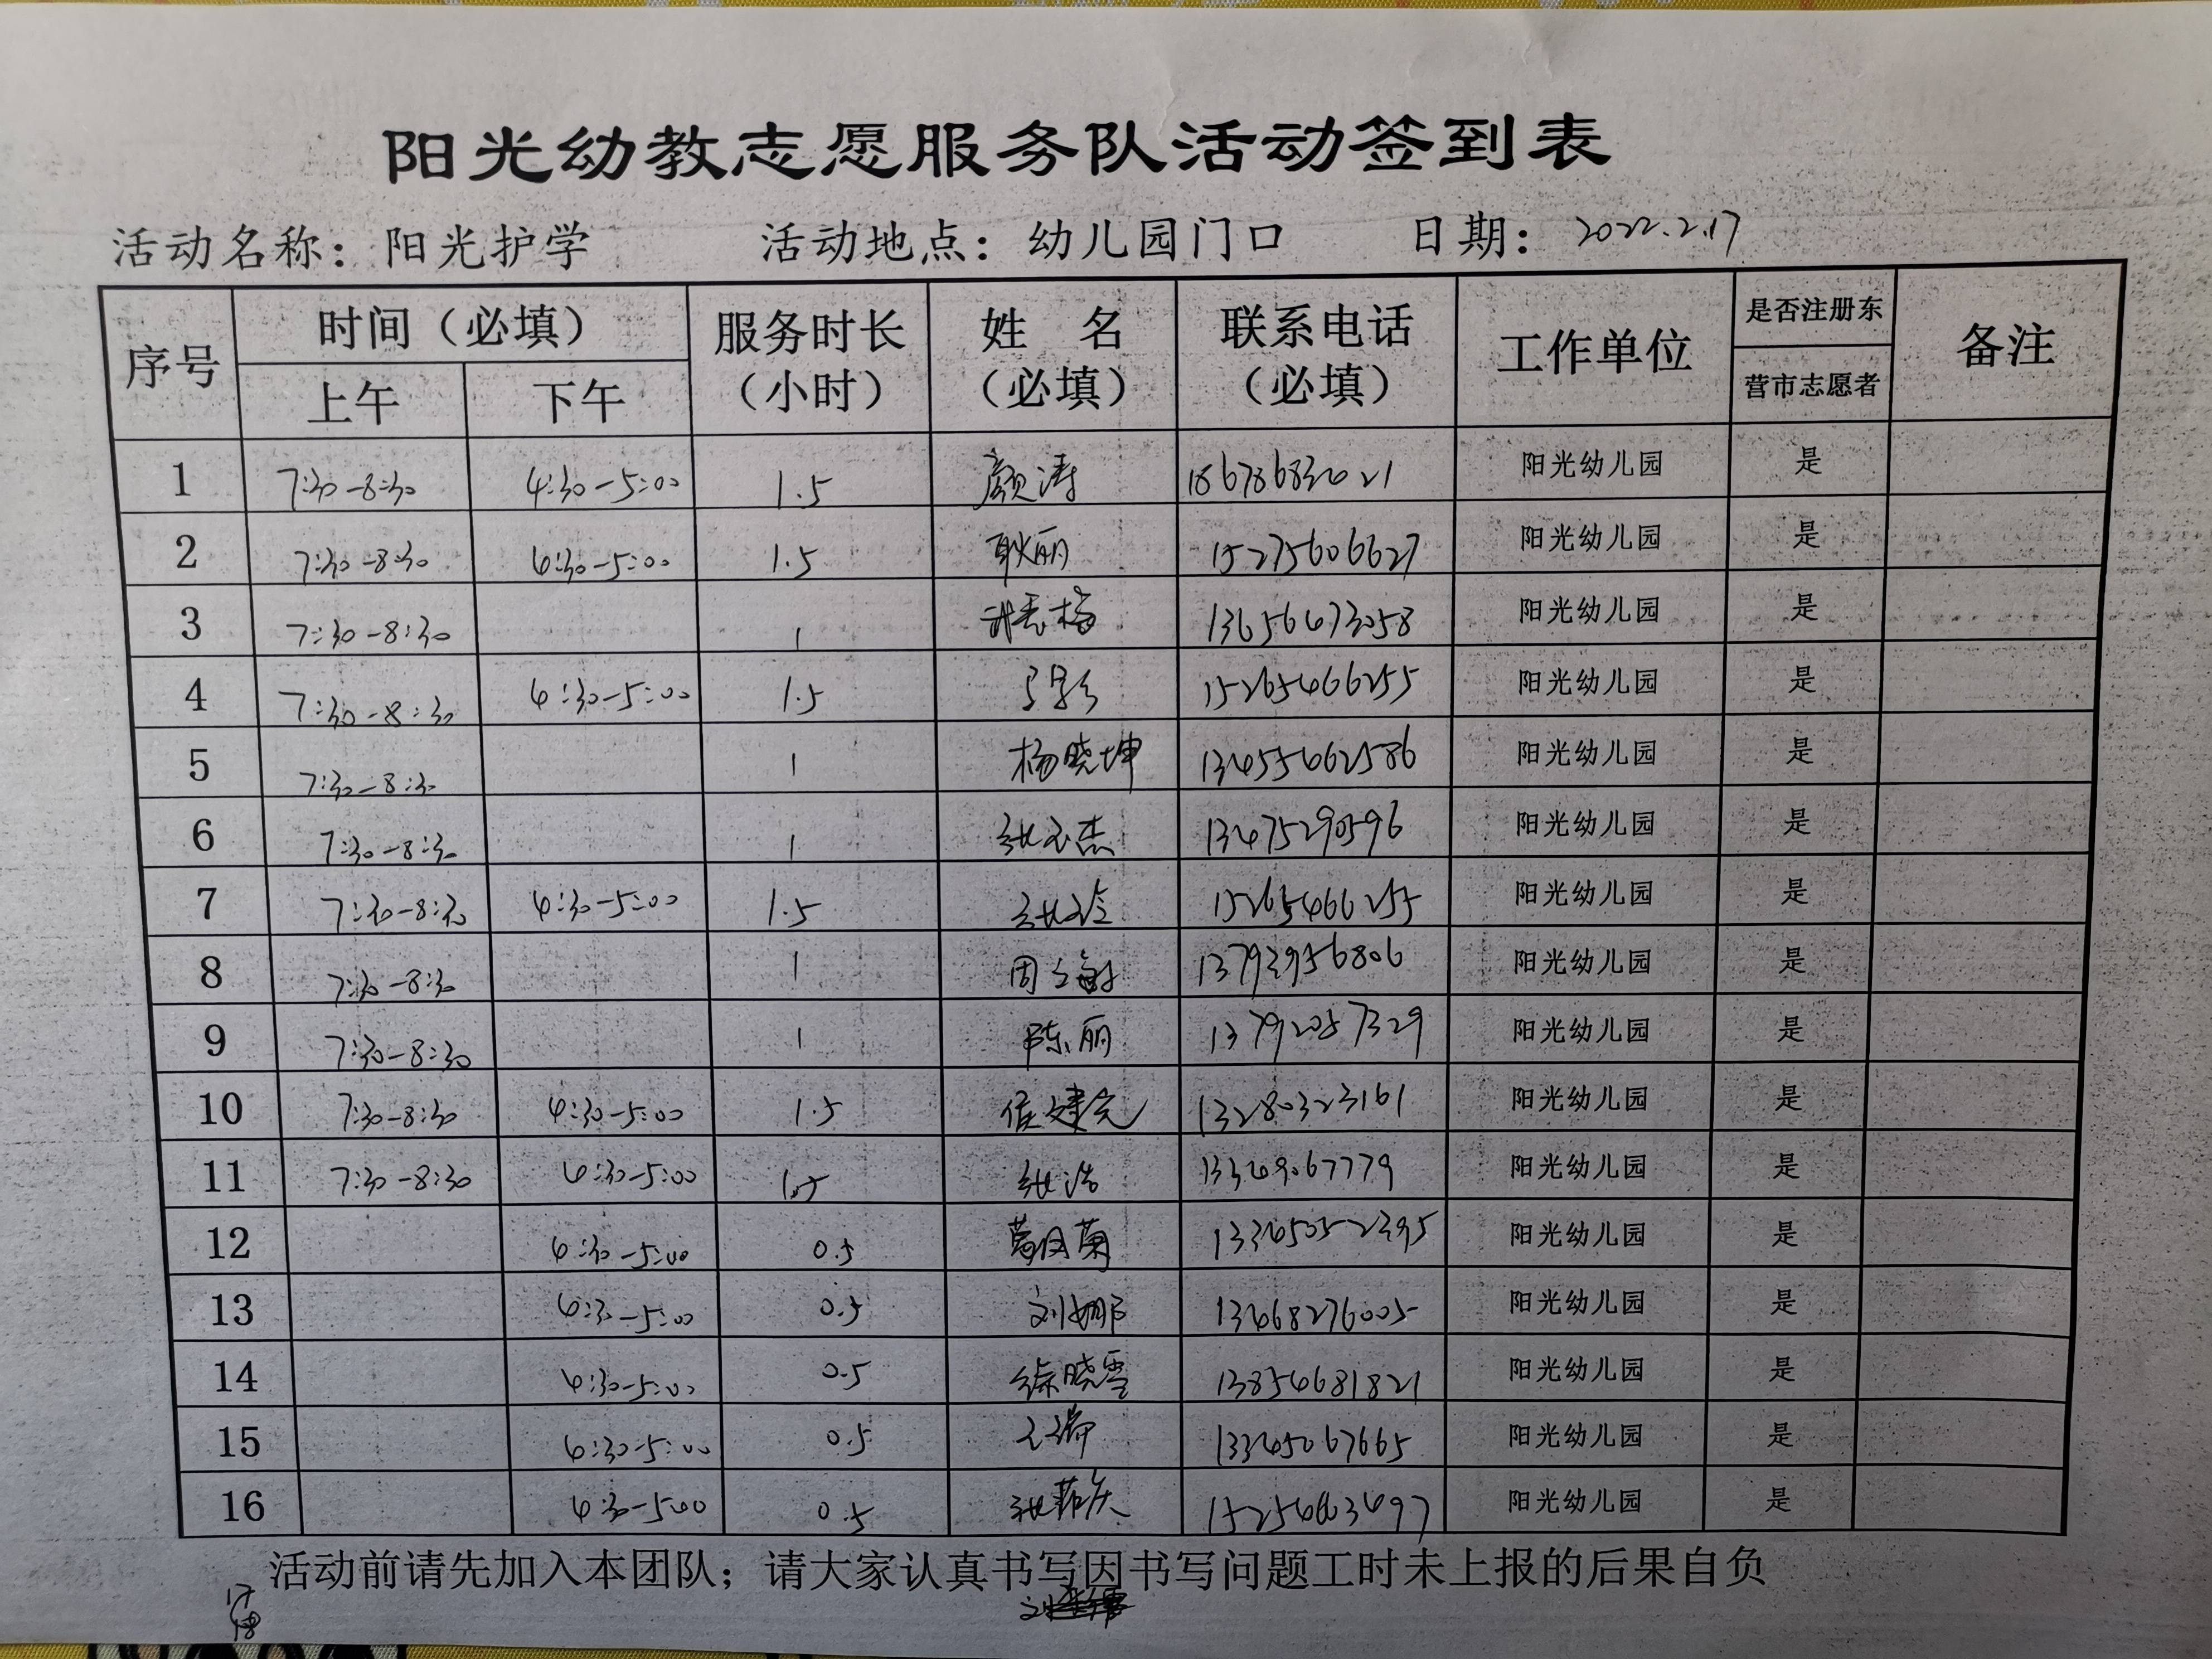 阳光幼教志愿服务队活动签到表
活动名称：阳光护学 活动地点：幼儿园门口 日期：2022.2.17
序号 时间（必填） 上午 下午 服务时长（小时） 姓 名（必填） 联系电话（必填） 工作单位 是否注册东营市志愿者 备注
1 7:30-8:30 4:30-5:00 1.5 颜涛 18678683021 阳光幼儿园 是
2 7:30-8:30 4:30-5:00 1.5 耿丽 15275606627 阳光幼儿园 是
3 7:30-8:30 1 13656473058 阳光幼儿园 是
4 7:30-8:30 4:30-5:00 1.5 15265466255 阳光幼儿园 是
5 7:30-8:30 1 杨晓坤 13455462586 阳光幼儿园 是
6 7:30-8:30 1 张玉杰 13475290596 阳光幼儿园 是
7 7:30-8:30 4:30-5:00 1.5 张玲 15265466255 阳光幼儿园 是
8 7:30-8:30 1 13793956806 阳光幼儿园 是
9 7:30-8:30 1 陈丽 13792057329 阳光幼儿园 是
10 7:30-8:30 4:30-5:00 1.5 侯建完 13280323161 阳光幼儿园 是
11 7:30-8:30 4:30-5:00 1.5 张浩 13349067779 阳光幼儿园 是
12 4:30-5:00 0.5 阳光幼儿园 是
13 4:30-5:00 0.5 刘娜 13468276005 阳光幼儿园 是
14 4:30-5:00 0.5 徐晓雪 13854681821 阳光幼儿园 是
15 4:30-5:00 0.5 王瑞 13345067665 阳光幼儿园 是
16 4:30-5:00 0.5 阳光幼儿园 是
活动前请先加入本团队；请大家认真书写因书写问题工时未上报的后果自负
17
18